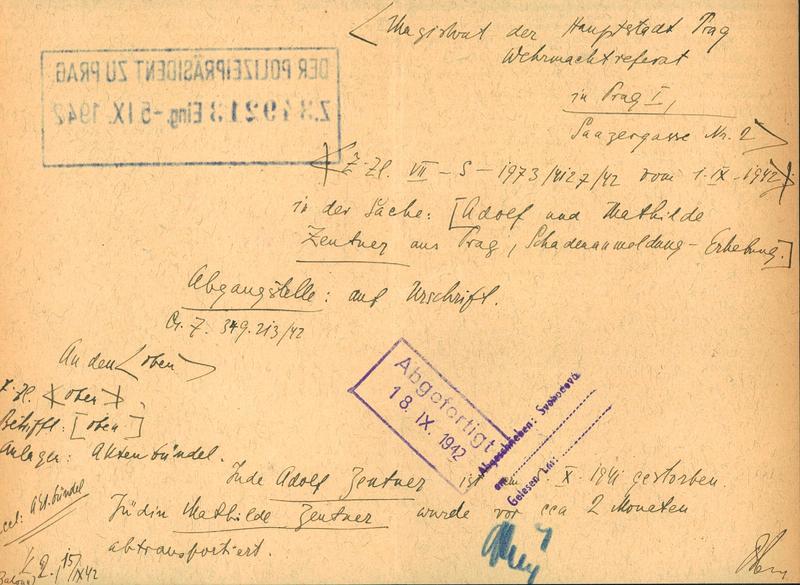 Magistrat der Hauptstadt Prag
Wehrmachtreferat
in Prag I,
Saazergasse Nr. 2
DER POLIZEIPRÄSIDENT ZU PRAG
Z. 349213 Eing. -5. IX. 1942
Z. Zl. VII - S - 1973/4127/42 vom 1. IX. 1942
in der Sache: [Adolf und Mathilde
Zentner aus Prag, Schadenanmeldung - Erhebung.]
Abgangstelle: auf Urschrift.
Cr. Z. 349.213/42
An den <oben>
Z. Zl. <oben>,
Betrifft: [oben]
Anlager: Aktenbündel.
Abgefertigt
18. IX. 1942
Abgeschrieben: Svobodová
am
Gelesen mit:
Jude Adolf Zentner ist am . X. 1941 gestorben.
Jüdin Mathilde Zentner wurde vor cca 2 Monaten
abtransportiert.
15/IX 42